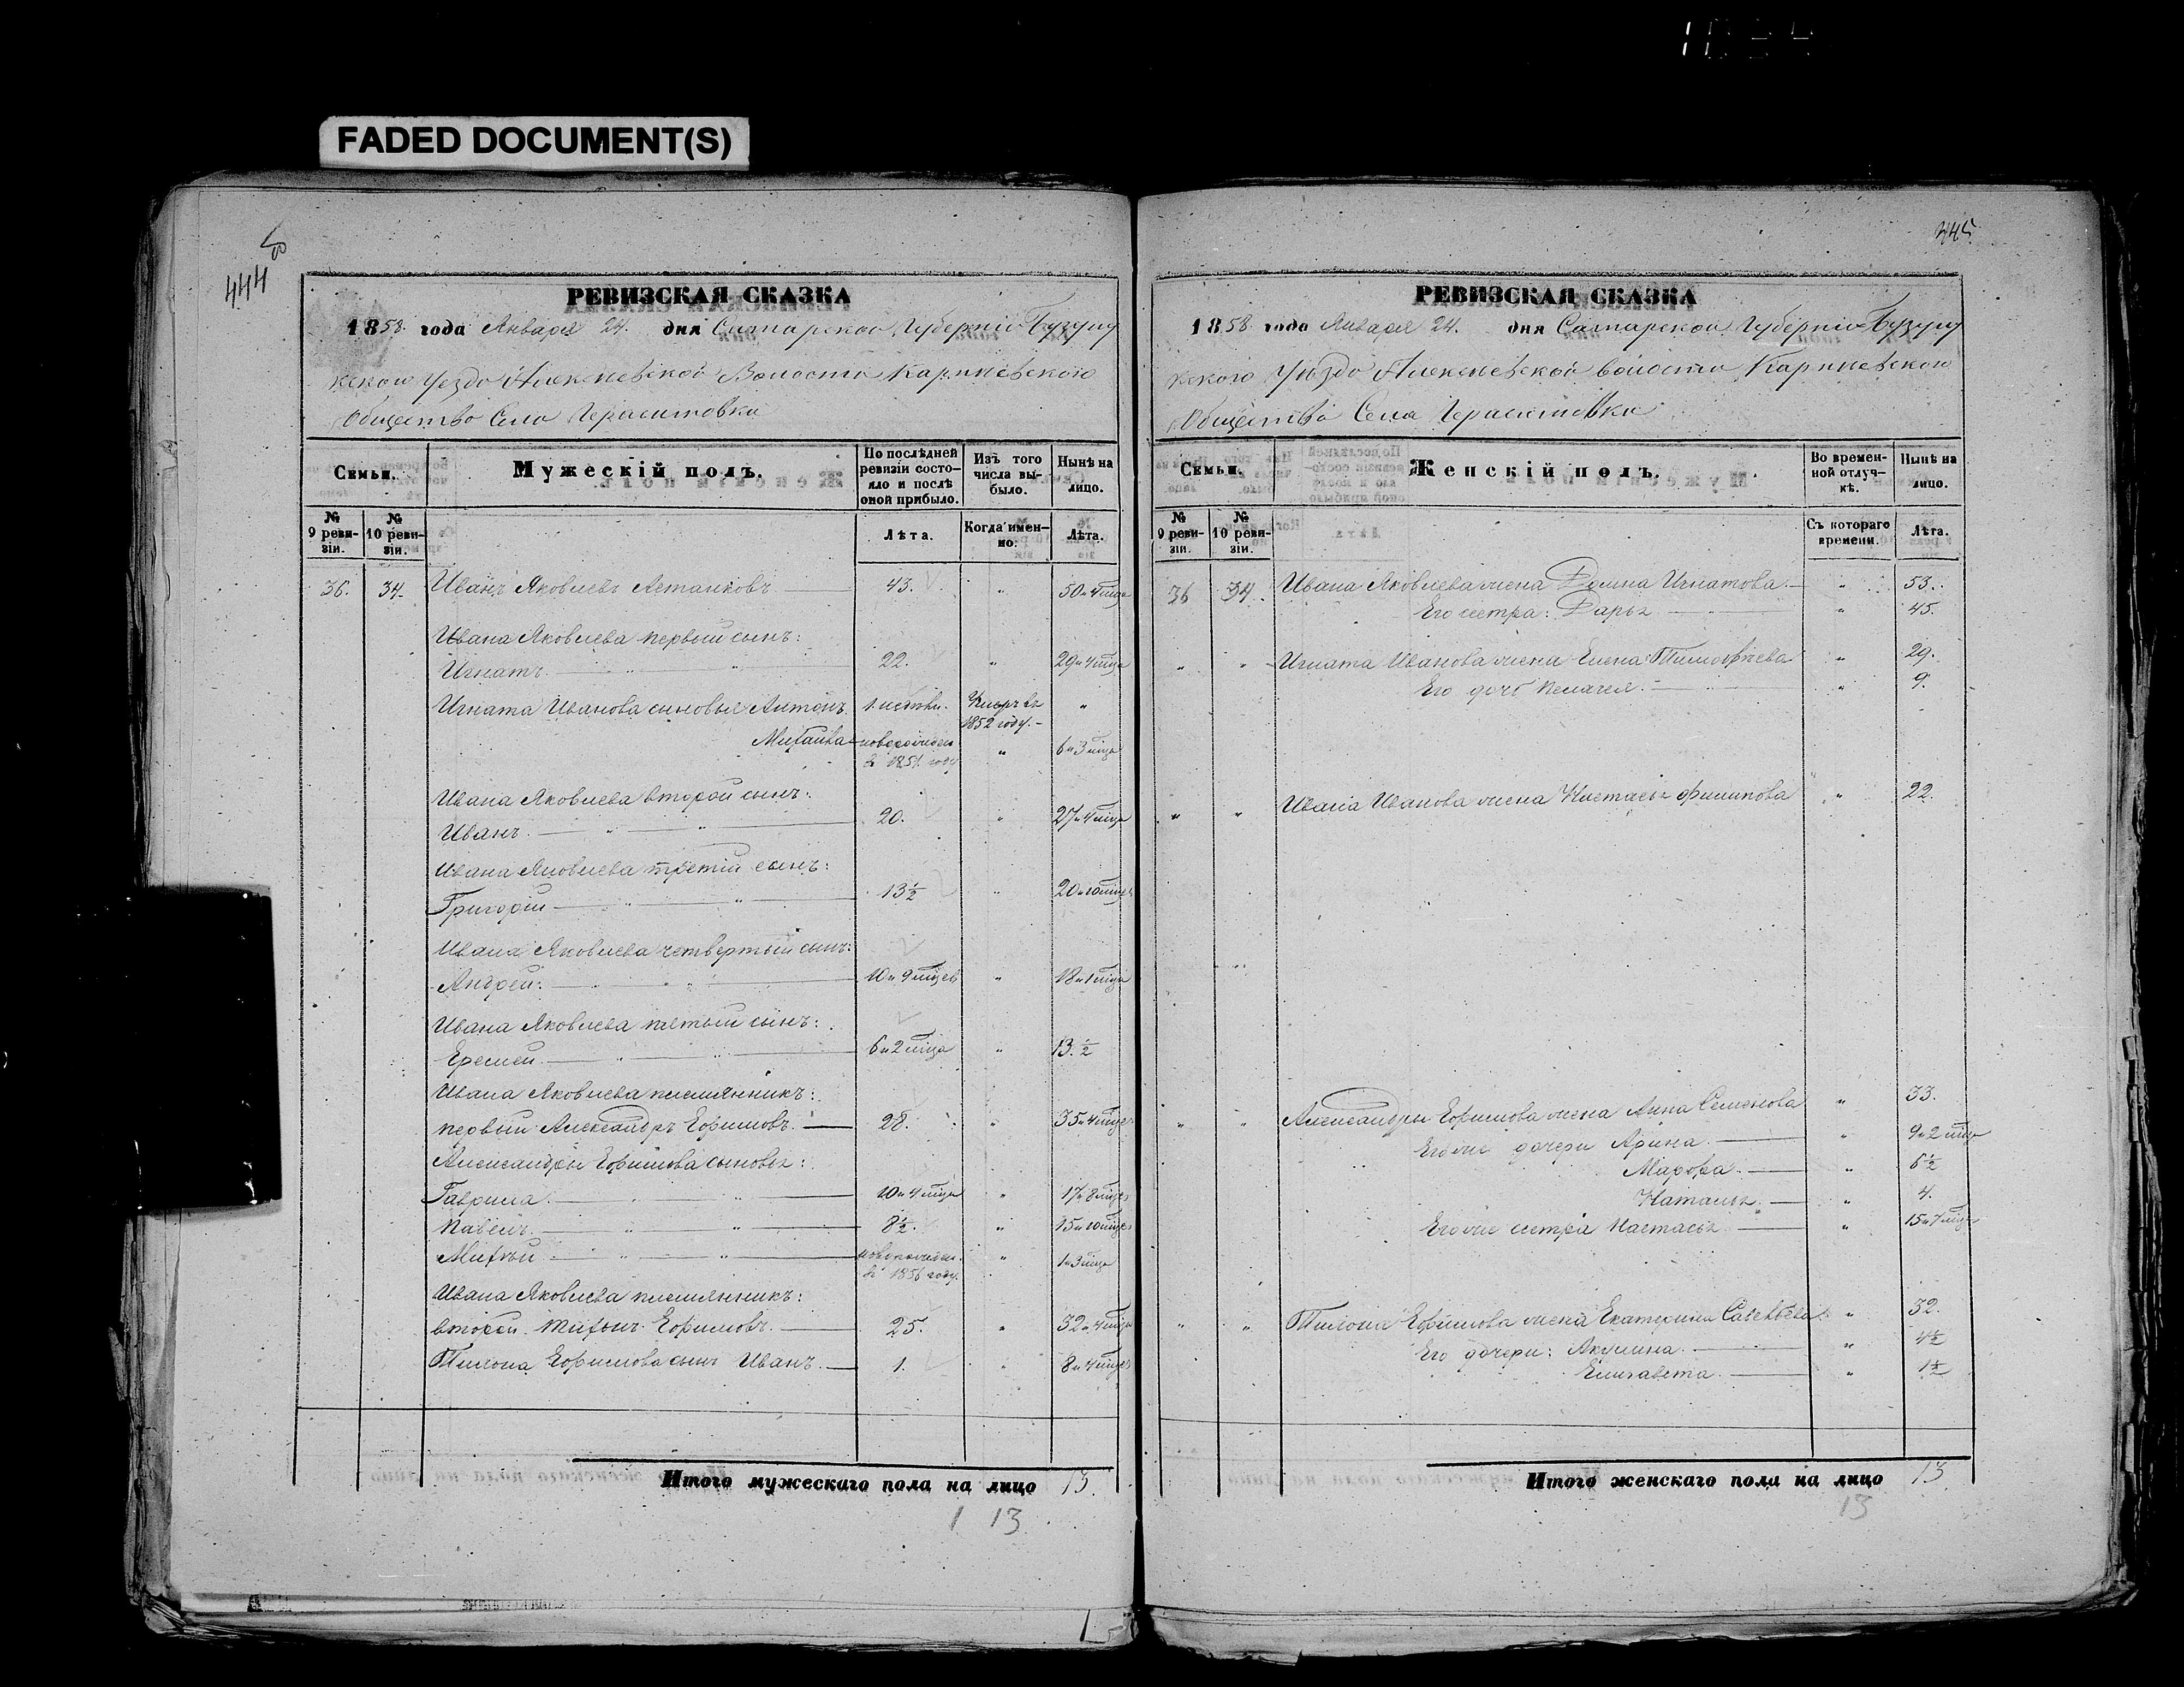 FADED DOCUMENT(S)
444
РЕВИЗСКАЯ СКАЗКА
1858 года Января 24. дня Самарской Губерніи Бузулу
кского Уездо Алексеевской Волости Кариневского
Общество Села Герасимовки
Семьи.
Мужескій полъ.
По послѣдней ревизіи состо-яло и послѣ оной прибыло.
Изъ того числа вы-было.
Нынѣ на лицо.
№ 9 реви-зіи.
№ 10 реви-зіи.
Лѣта.
Когда имен-но.
Лѣта.
36. 34. Иванъ Яковлевъ Астанковъ 43. " 50 и 4 мца
Ивана Яковлева первый сынъ:
Игнатъ. 22. " 29 и 4 мца
Игната Иванова сыновья Антонъ. 1. Умеръ въ 1852 году. "
Михайла новорожден въ 1851 году " 6 и 3 мца
Ивана Яковлева второй сынъ:
Иванъ. 20. " 27 и 4 мца
Ивана Яковлева третій сынъ:
Григорій 13½ " 20 и 10 мцев
Ивана Яковлева четвертый сынъ:
Андрей: 10 и 9 мцев " 18 и 1 мца
Ивана Яковлева пятый сынъ:
Еремей 6 и 2 мца " 13.½
Ивана Яковлева племянникъ:
первый Александръ Ефимовъ. 28. " 35 и 4 мца
Александры Ефимова сыновья:
Гаврила. 10 и 4 мца " 17 и 8 мцев
Павелъ. 8½. " 15 и 10 мцев
Михѣй новорожден. въ 1856 году. " 1 и 3 мца
Ивана Яковлева племянникъ:
второй. Тихонъ Ефимовъ. 25. " 32 и 4 мца
Тихона Ефимова сынъ Иванъ. 1. " 8 и 4 мца
Итого мужескаго пола на лицо 13.
1 13
445
РЕВИЗСКАЯ СКАЗКА
1858 года Января 24. дня Самарской Губерніи Бузулу
кского Уѣздо Алексеевской волости Кариневского
Общество Села Герасимовки
Семьи.
Женскій полъ.
Во времен-ной отлуч-кѣ.
Нынѣ на лицо.
№ 9 реви-зіи.
№ 10 реви-зіи.
Съ котораго времени.
Лѣта.
36 34. Ивана Яковлева жена Домна Игнатова. " 53.
Его сестра: Дарья " 45.
" " Игната Иванова жена Елена Тимофѣева " 29.
Его дочь Пелагея. " 9.
" " Ивана Иванова жена Настасья Филипова " 22.
" " Александры Ефимова жена Анна Семенова " 33.
Его же дочери Арина. " 9 и 2 мца
Марфа. " 6½
Наталья. " 4.
Его же сестра Настасья " 15 и 7 мцев
" " Тихона Ефимова жена Екатерина Савельева: " 32.
Его дочери: Акулина. " 4½
Елизавета. " 1½
Итого женскаго пола на лицо 13
13